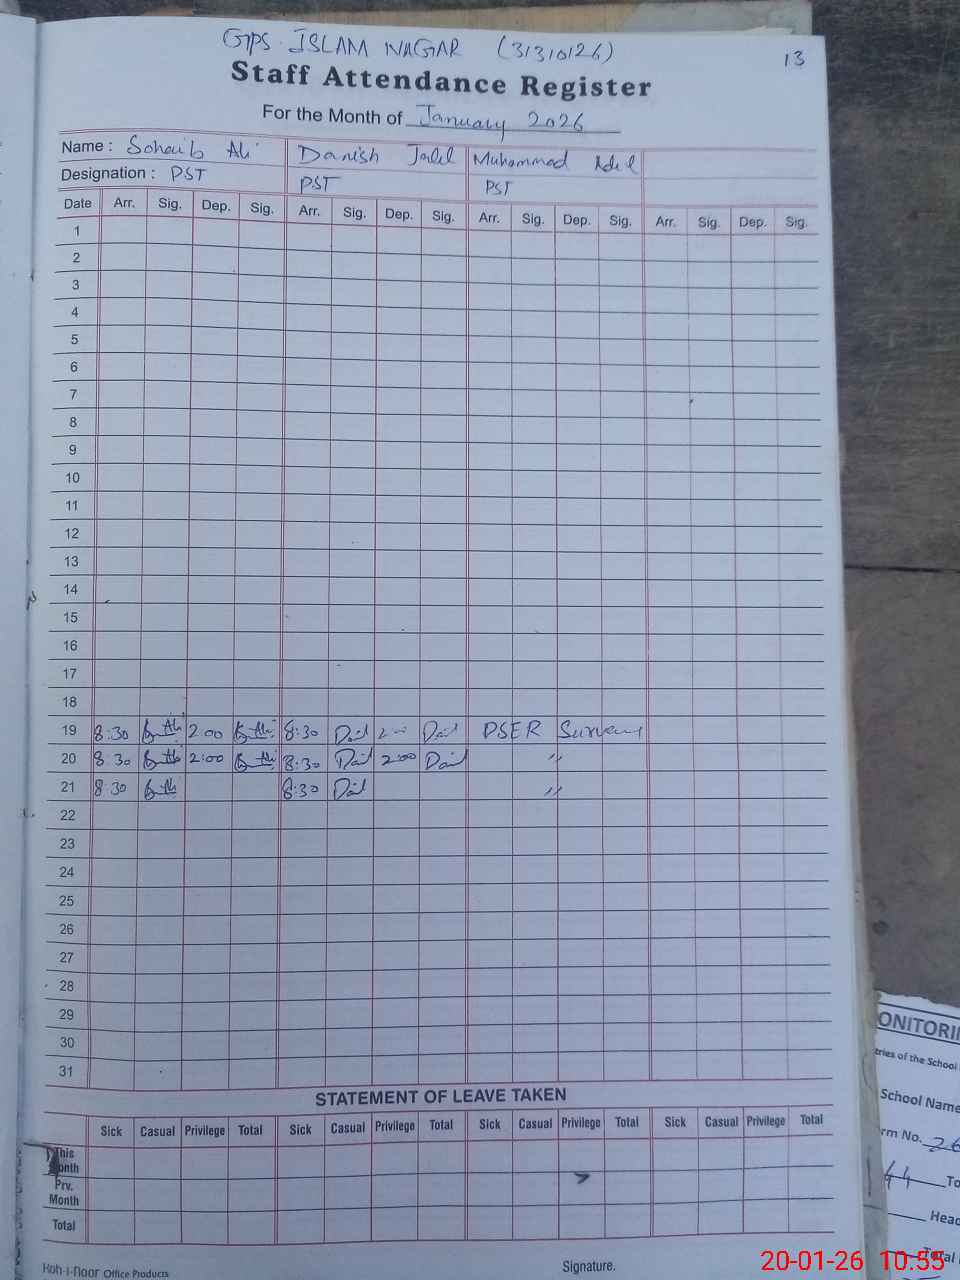 GPS. ISLAM NAGAR (31310126)
13
Staff Attendance Register
For the Month of January 2026
Name : Sohaib Ali Danish Jalil Muhammad Adeel
Designation : PST PST PST
Date Arr. Sig. Dep. Sig. Arr. Sig. Dep. Sig. Arr. Sig. Dep. Sig. Arr. Sig. Dep. Sig.
1
2
3
4
5
6
7
8
9
10
11
12
13
14
15
16
17
18
19 8:30 2:00 8:30 2:00 PSER Survey
20 8:30 2:00 8:30 2:00 "
21 8:30 8:30 "
22
23
24
25
26
27
28
29
30
31
STATEMENT OF LEAVE TAKEN
Sick Casual Privilege Total Sick Casual Privilege Total Sick Casual Privilege Total Sick Casual Privilege Total
This Month
Prv. Month
Total
Koh-i-Noor Office Products Signature.
ONITORI
tries of the School
School Name
rm No. 26
44 To
Head
Total
20-01-26 10:55